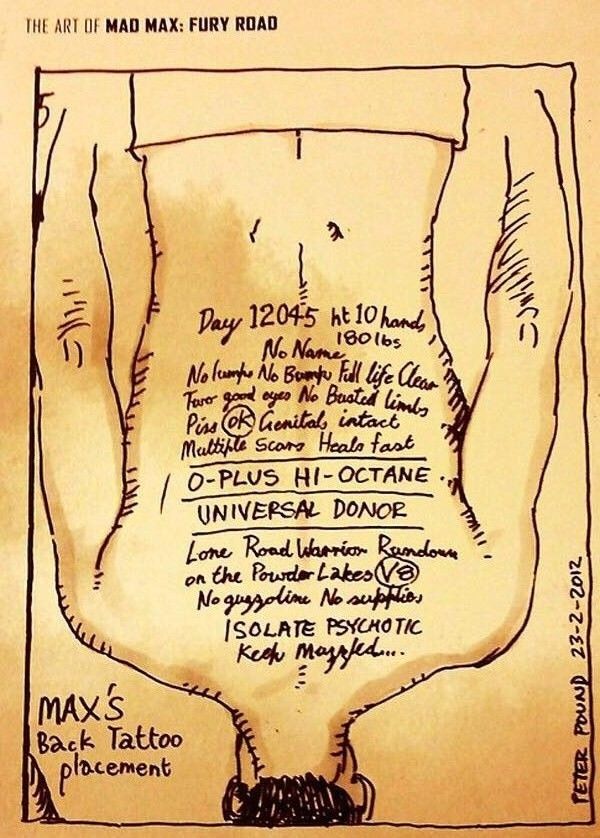 THE ART OF MAD MAX: FURY ROAD
5
Day 12045 ht 10 hands
180 lbs
No Name
No lumps No Bumps Full life Clear
Two good eyes No Busted limbs
Piss OK Genitals intact
Multiple Scars Heals fast
O-PLUS HI-OCTANE
UNIVERSAL DONOR
Lone Road Warrior Rundown
on the Powder Lakes V8
No guzzoline No supplies
ISOLATE PSYCHOTIC
Keep Muzzled...
MAX'S
Back Tattoo
placement
PETER POUND 23-2-2012